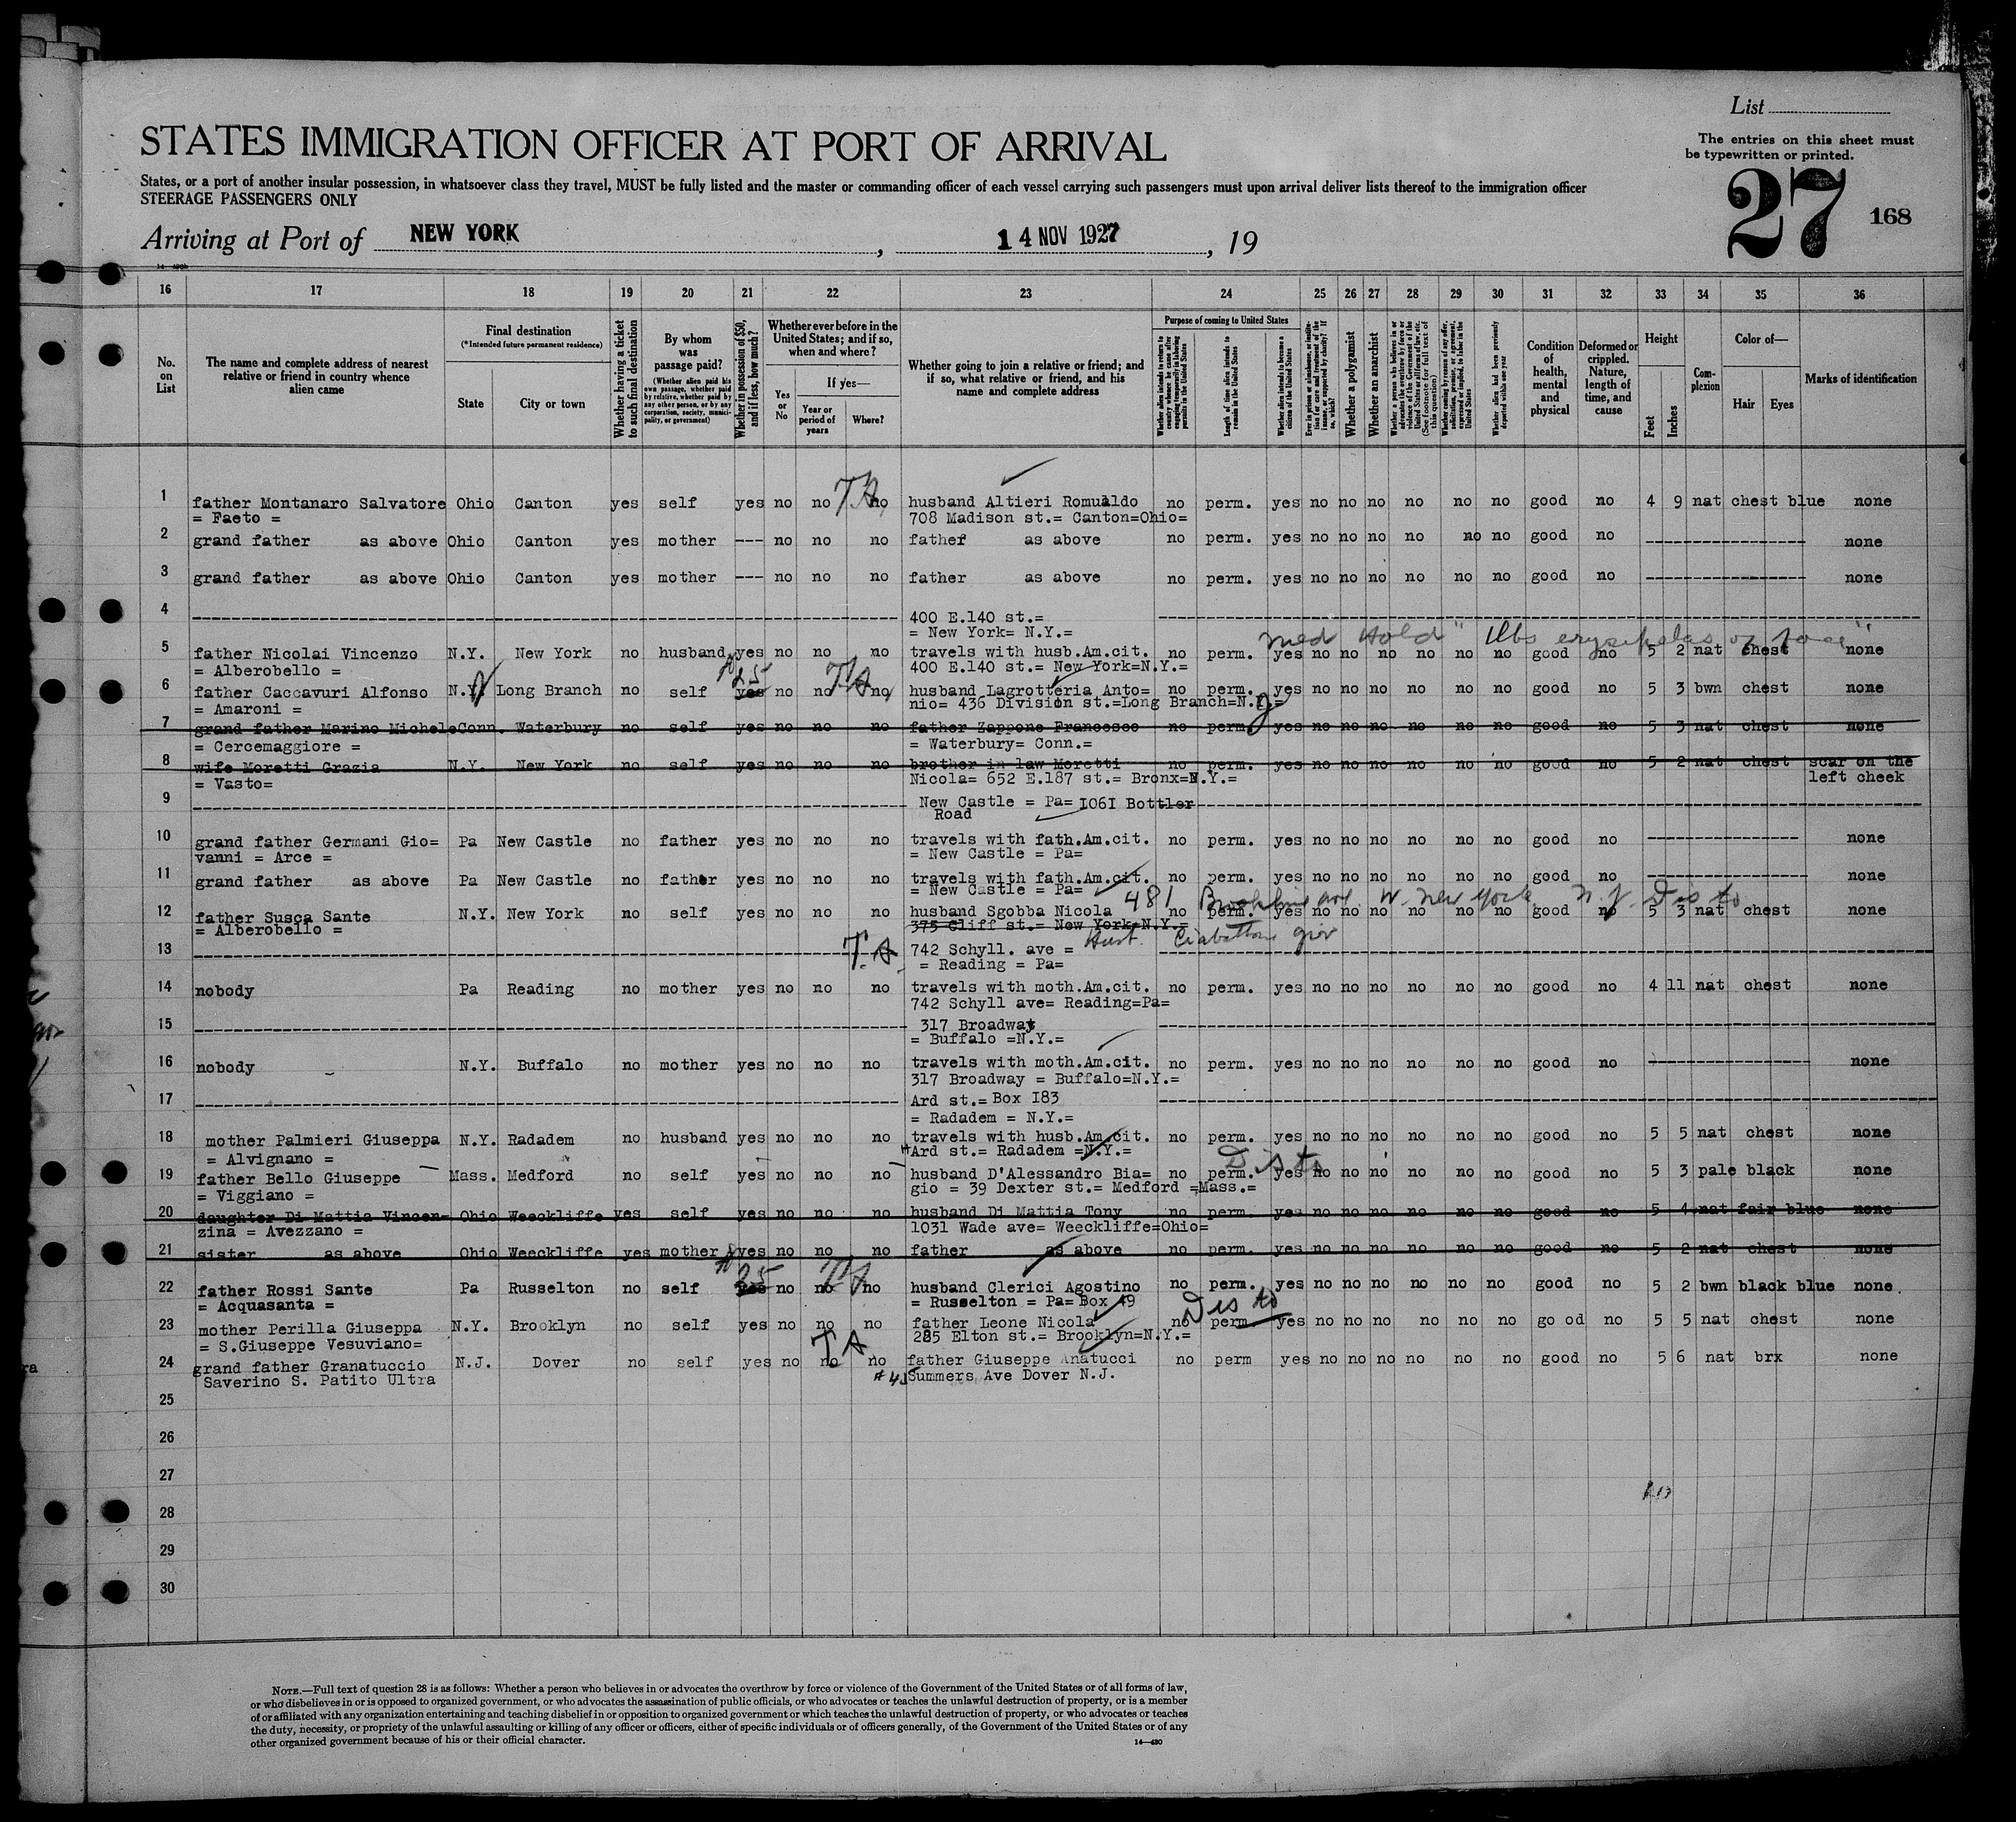 List
STATES IMMIGRATION OFFICER AT PORT OF ARRIVAL
The entries on this sheet must
be typewritten or printed.
States, or a port of another insular possession, in whatsoever class they travel, MUST be fully listed and the master or commanding officer of each vessel carrying such passengers must upon arrival deliver lists thereof to the immigration officer
STEERAGE PASSENGERS ONLY
27 168
Arriving at Port of NEW YORK, 14 NOV 1927, 19
16 17 18 19 20 21 22 23 24 25 26 27 28 29 30 31 32 33 34 35 36
No. on List
The name and complete address of nearest relative or friend in country whence alien came
Final destination
(*Intended future permanent residence)
State City or town
Whether having a ticket to such final destination
By whom was passage paid?
(Whether alien paid his own passage, whether paid by relative, whether paid by any other person, or by any corporation, society, municipality, or government)
Whether in possession of $50, and if less, how much?
Whether ever before in the United States; and if so, when and where?
Yes or No
If yes—
Year or period of years
Where?
Whether going to join a relative or friend; and if so, what relative or friend, and his name and complete address
Purpose of coming to United States
Length of time alien intends to remain in the United States
Whether alien intends to become a citizen of the United States
Whether a polygamist
Whether an anarchist
Condition of health, mental and physical
Deformed or crippled. Nature, length of time, and cause
Height
Feet Inches
Complexion
Color of—
Hair Eyes
Marks of identification
1 father Montanaro Salvatore Ohio Canton yes self yes no no no husband Altieri Romualdo no perm. yes no no no no no no good no 4 9 nat chest blue none
= Faeto = 708 Madison st.= Canton=Ohio=
TA
2 grand father as above Ohio Canton yes mother --- no no no father as above no perm. yes no no no no no no good no none
3 grand father as above Ohio Canton yes mother --- no no no father as above no perm. yes no no no no no no good no none
4 400 E.140 st.=
= New York= N.Y.=
med Hold" erysipelas of face"
5 father Nicolai Vincenzo N.Y. New York no husband yes no no no travels with husb.Am.cit. no perm. yes no no no no no no good no 5 2 nat chest none
= Alberobello = 400 E.140 st.= New York=N.Y.=
25 TA
6 father Caccavuri Alfonso N.Y. Long Branch no self yes no no no husband Lagrotteria Anto= no perm. yes no no no no no no good no 5 3 bwn chest none
= Amaroni = nio= 436 Division st.=Long Branch=N.
7 grand father Marino Michele Conn. Waterbury no self yes no no no father Zappone Francesco no perm. yes no no no no no no good no 5 3 nat chest none
= Cercemaggiore = = Waterbury= Conn.=
8 wife Moretti Grazia N.Y. New York no self yes no no no brother in law Moretti no perm. yes no no no no no no good no 5 2 nat chest scar on the
= Vasto= Nicola= 652 E.187 st.= Bronx=N.Y.= left cheek
9 New Castle = Pa= I06I Bottler
Road
10 grand father Germani Gio= Pa New Castle no father yes no no no travels with fath.Am.cit. no perm. yes no no no no no no good no none
vanni = Arce = = New Castle = Pa=
11 grand father as above Pa New Castle no father yes no no no travels with fath.Am.cit. no perm. yes no no no no no no good no none
= New Castle = Pa=
481 ave. W. New York N.J. Dis to
12 father Susca Sante N.Y. New York no self yes no no no husband Sgobba Nicola no perm. yes no no no no no no good no 5 3 nat chest none
= Alberobello = 375 Cliff st.= New York=N.Y.=
13 TA 742 Schyll. ave =
= Reading = Pa=
14 nobody Pa Reading no mother yes no no no travels with moth.Am.cit. no perm. yes no no no no no no good no 4 11 nat chest none
742 Schyll ave= Reading=Pa=
15 317 Broadway
= Buffalo =N.Y.=
16 nobody N.Y. Buffalo no mother yes no no no travels with moth.Am.cit. no perm. yes no no no no no no good no none
317 Broadway = Buffalo=N.Y.=
17 Ard st.= Box I83
= Radadem = N.Y.=
18 mother Palmieri Giuseppa N.Y. Radadem no husband yes no no no travels with husb.Am.cit. no perm. yes no no no no no no good no 5 5 nat chest none
= Alvignano = Ard st.= Radadem =N.Y.=
Dis to
19 father Bello Giuseppe Mass. Medford no self yes no no no husband D'Alessandro Bia= no perm. yes no no no no no no good no 5 3 pale black none
= Viggiano = gio = 39 Dexter st.= Medford =Mass.=
20 daughter Di Mattia Vincen= Ohio Weeckliffe yes self yes no no no husband Di Mattia Tony no perm. yes no no no no no no good no 5 4 nat fair blue none
zina = Avezzano = 1031 Wade ave= Weeckliffe=Ohio=
21 sister as above Ohio Weeckliffe yes mother yes no no no father as above no perm. yes no no no no no no good no 5 2 nat chest none
25 TA
22 father Rossi Sante Pa Russelton no self yes no no no husband Clerici Agostino no perm. yes no no no no no no good no 5 2 bwn black blue none.
= Acquasanta = = Russelton = Pa= Box 49
Dis to
23 mother Perilla Giuseppa N.Y. Brooklyn no self yes no no no father Leone Nicola no perm. yes no no no no no no go od no 5 5 nat chest none
= S.Giuseppe Vesuviano= 285 Elton st.= Brooklyn=N.Y.=
TA
24 grand father Granatuccio N.J. Dover no self yes no no no father Giuseppe Anatucci no perm yes no no no no no no good no 5 6 nat brx none
Saverino S. Patito Ultra Summers Ave Dover N.J.
25
26
27
28
29
30
NOTE.—Full text of question 28 is as follows: Whether a person who believes in or advocates the overthrow by force or violence of the Government of the United States or of all forms of law,
or who disbelieves in or is opposed to organized government, or who advocates the assassination of public officials, or who advocates or teaches the unlawful destruction of property, or is a member
of or affiliated with any organization entertaining and teaching disbelief in or opposition to organized government or which teaches the unlawful destruction of property, or who advocates or teaches
the duty, necessity, or propriety of the unlawful assaulting or killing of any officer or officers, either of specific individuals or of officers generally, of the Government of the United States or of any
other organized government because of his or their official character.
14—430